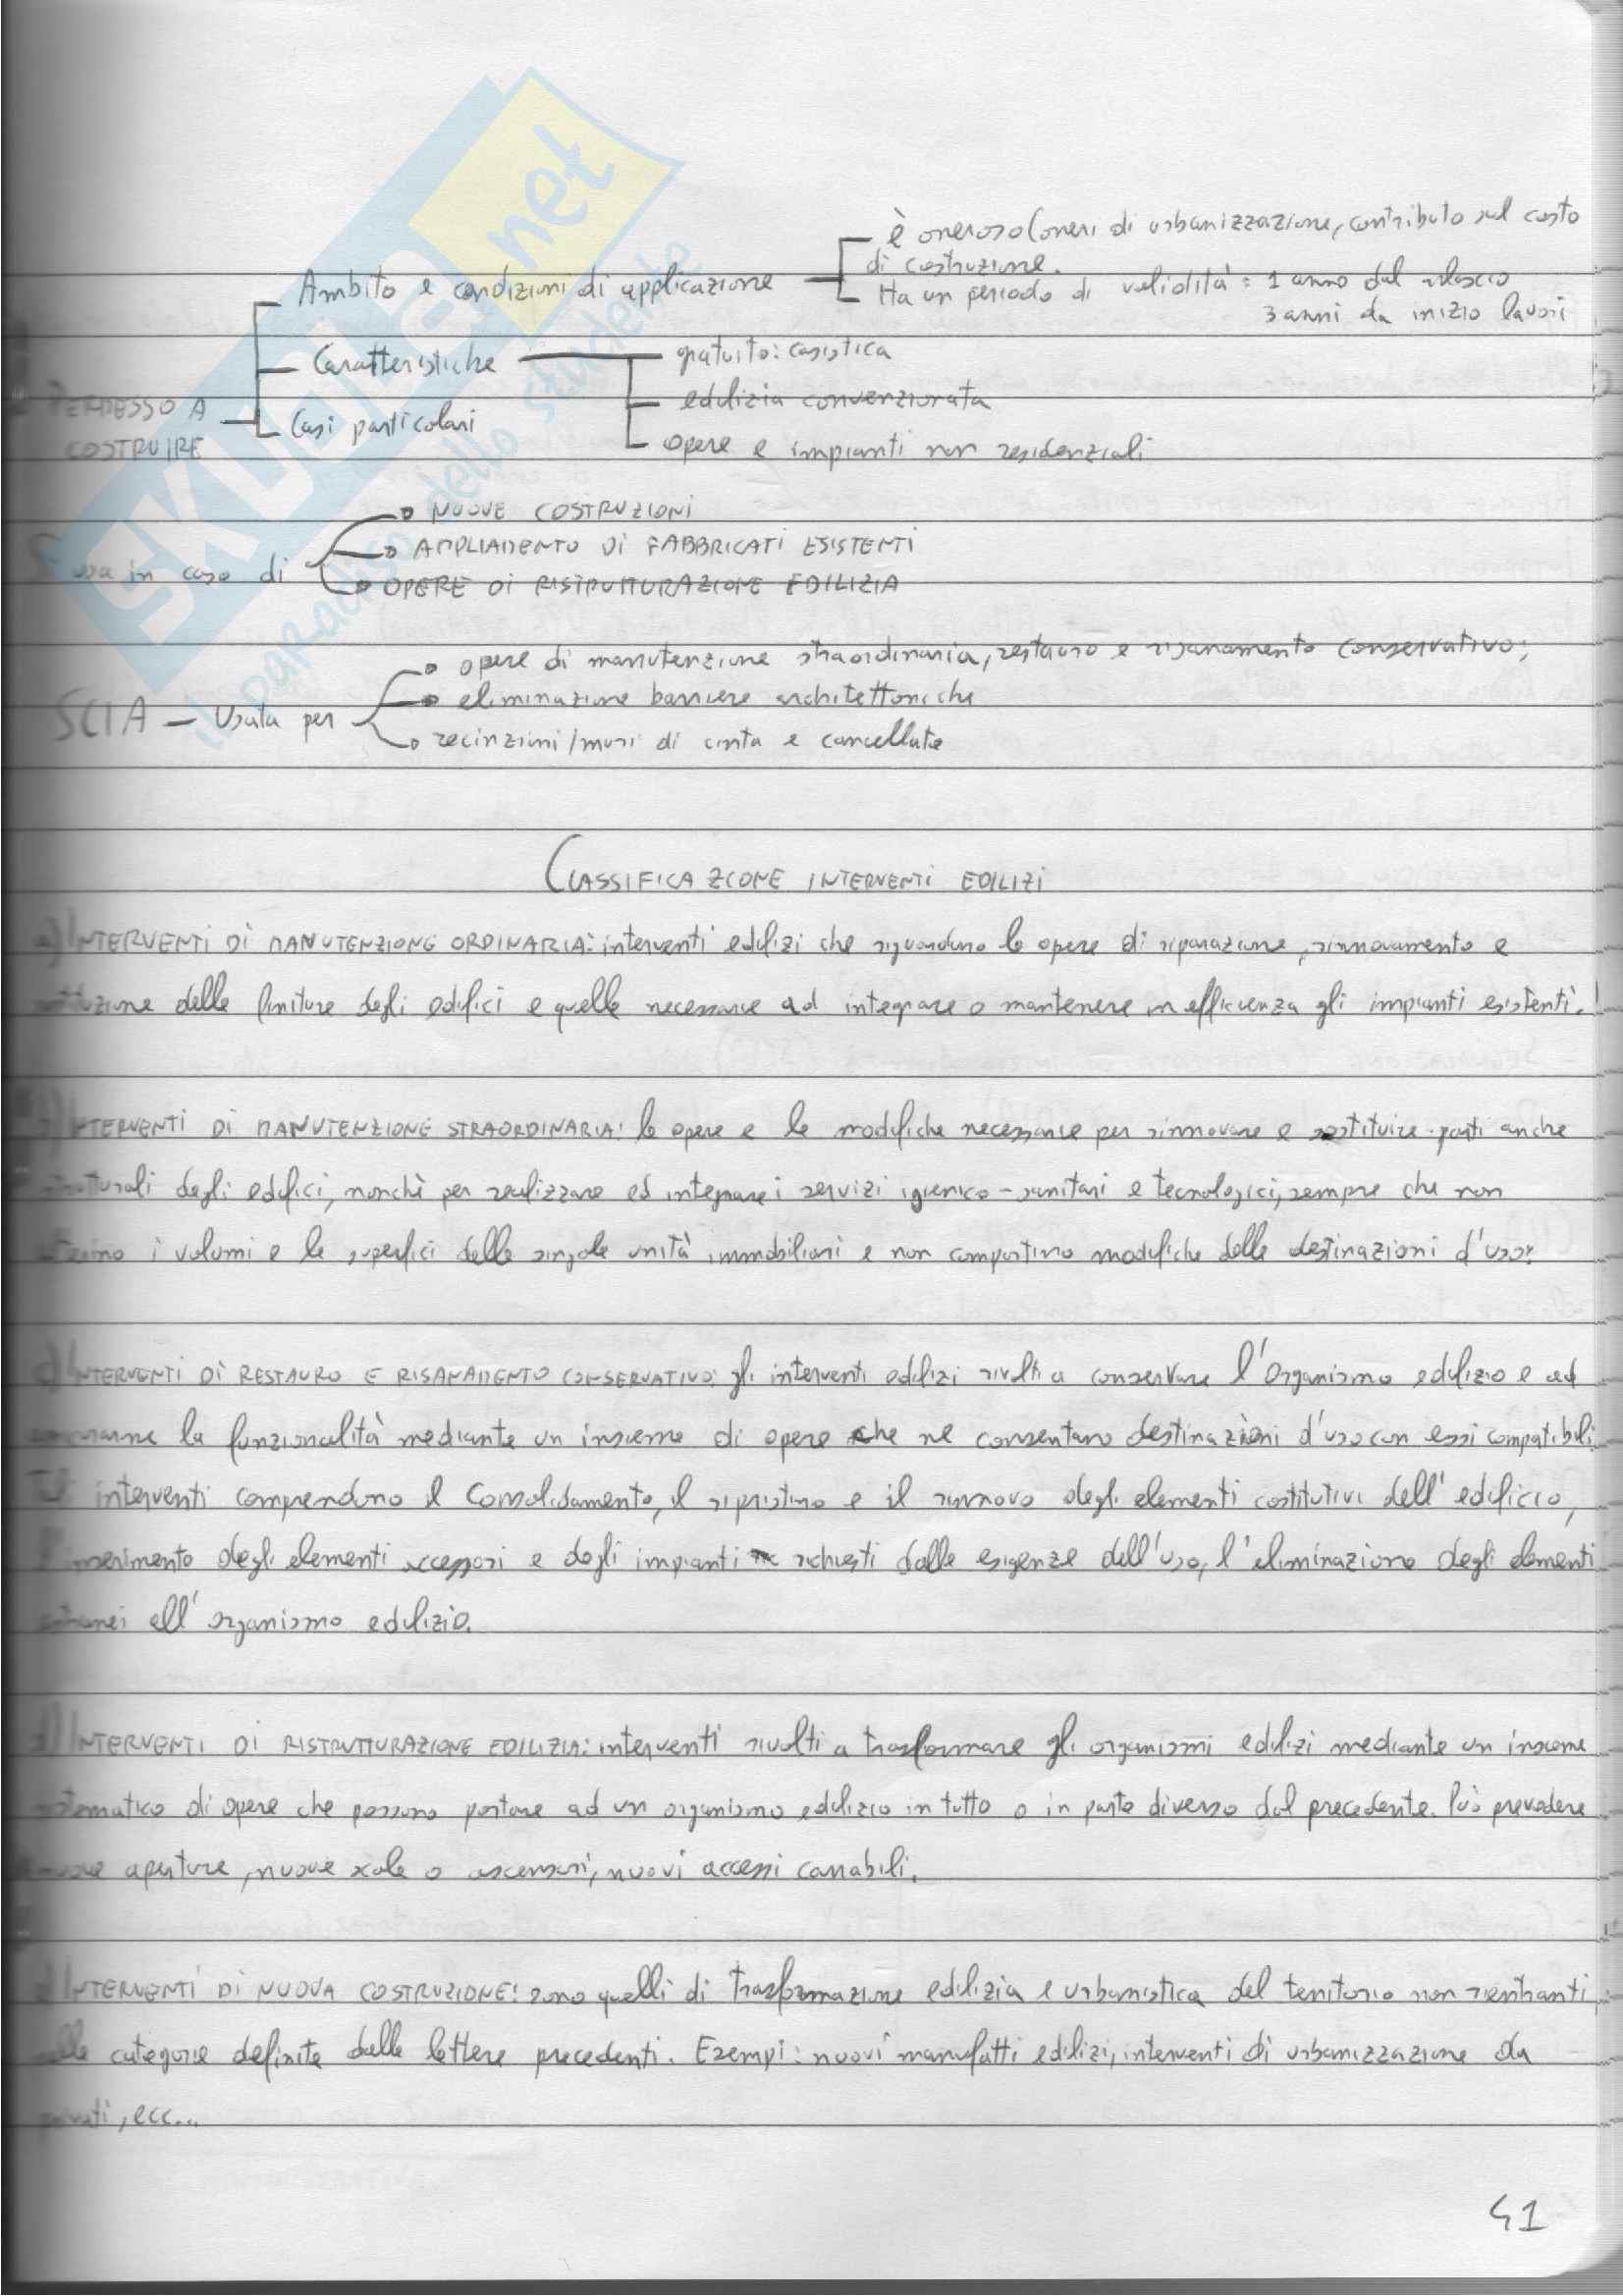 è oneroso (oneri di urbanizzazione, contributo sul costo
di costruzione.
Ambito e condizioni di applicazione
Ha un periodo di validità: 1 anno dal rilascio
3 anni da inizio lavori
Caratteristiche
gratuito: casistica
PERMESSO A
COSTRUIRE
edilizia convenzionata
Casi particolari
opere e impianti non residenziali
NUOVE COSTRUZIONI
usa in caso di
AMPLIAMENTO DI FABBRICATI ESISTENTI
OPERE DI RISTRUTTURAZIONE EDILIZIA
opere di manutenzione straordinaria, restauro e risanamento conservativo;
SCIA – Usata per
eliminazione barriere architettoniche
recinzioni/muri di cinta e cancellate
CLASSIFICAZIONE INTERVENTI EDILIZI
a) INTERVENTI DI MANUTENZIONE ORDINARIA: interventi edilizi che riguardano le opere di riparazione, rinnovamento e
sostituzione delle finiture degli edifici e quelle necessarie ad integrare o mantenere in efficienza gli impianti esistenti.
b) INTERVENTI DI MANUTENZIONE STRAORDINARIA: le opere e le modifiche necessarie per rinnovare e sostituire parti anche
strutturali degli edifici, nonchè per realizzare ed integrare i servizi igienico-sanitari e tecnologici, sempre che non
alterino i volumi e le superfici delle singole unità immobiliari e non comportino modifiche delle destinazioni d'uso.
c) INTERVENTI DI RESTAURO E RISANAMENTO CONSERVATIVO: gli interventi edilizi rivolti a conservare l'organismo edilizio e ad
la funzionalità mediante un insieme di opere che ne consentano destinazioni d'uso con essi compatibili.
Tali interventi comprendono il consolidamento, il ripristino e il rinnovo degli elementi costitutivi dell'edificio,
l'inserimento degli elementi accessori e degli impianti richiesti dalle esigenze dell'uso, l'eliminazione degli elementi
estranei all'organismo edilizio.
d) INTERVENTI DI RISTRUTTURAZIONE EDILIZIA: interventi rivolti a trasformare gli organismi edilizi mediante un insieme
sistematico di opere che possono portare ad un organismo edilizio in tutto o in parte diverso dal precedente. Può prevedere
nuove aperture, nuove scale o ascensori, nuovi accessi carrabili.
e) INTERVENTI DI NUOVA COSTRUZIONE: sono quelli di trasformazione edilizia e urbanistica del territorio non rientranti
nelle categorie definite dalle lettere precedenti. Esempi: nuovi manufatti edilizi, interventi di urbanizzazione da
privati, ecc...
41
SKUOLA.net
il paradiso dello studente